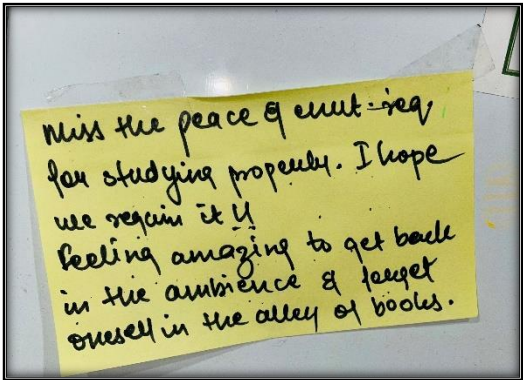 Miss the peace & envt. req.
for studying properly. I hope
we regain it !!
Feeling amazing to get back
in the ambience & forget
oneself in the alley of books.